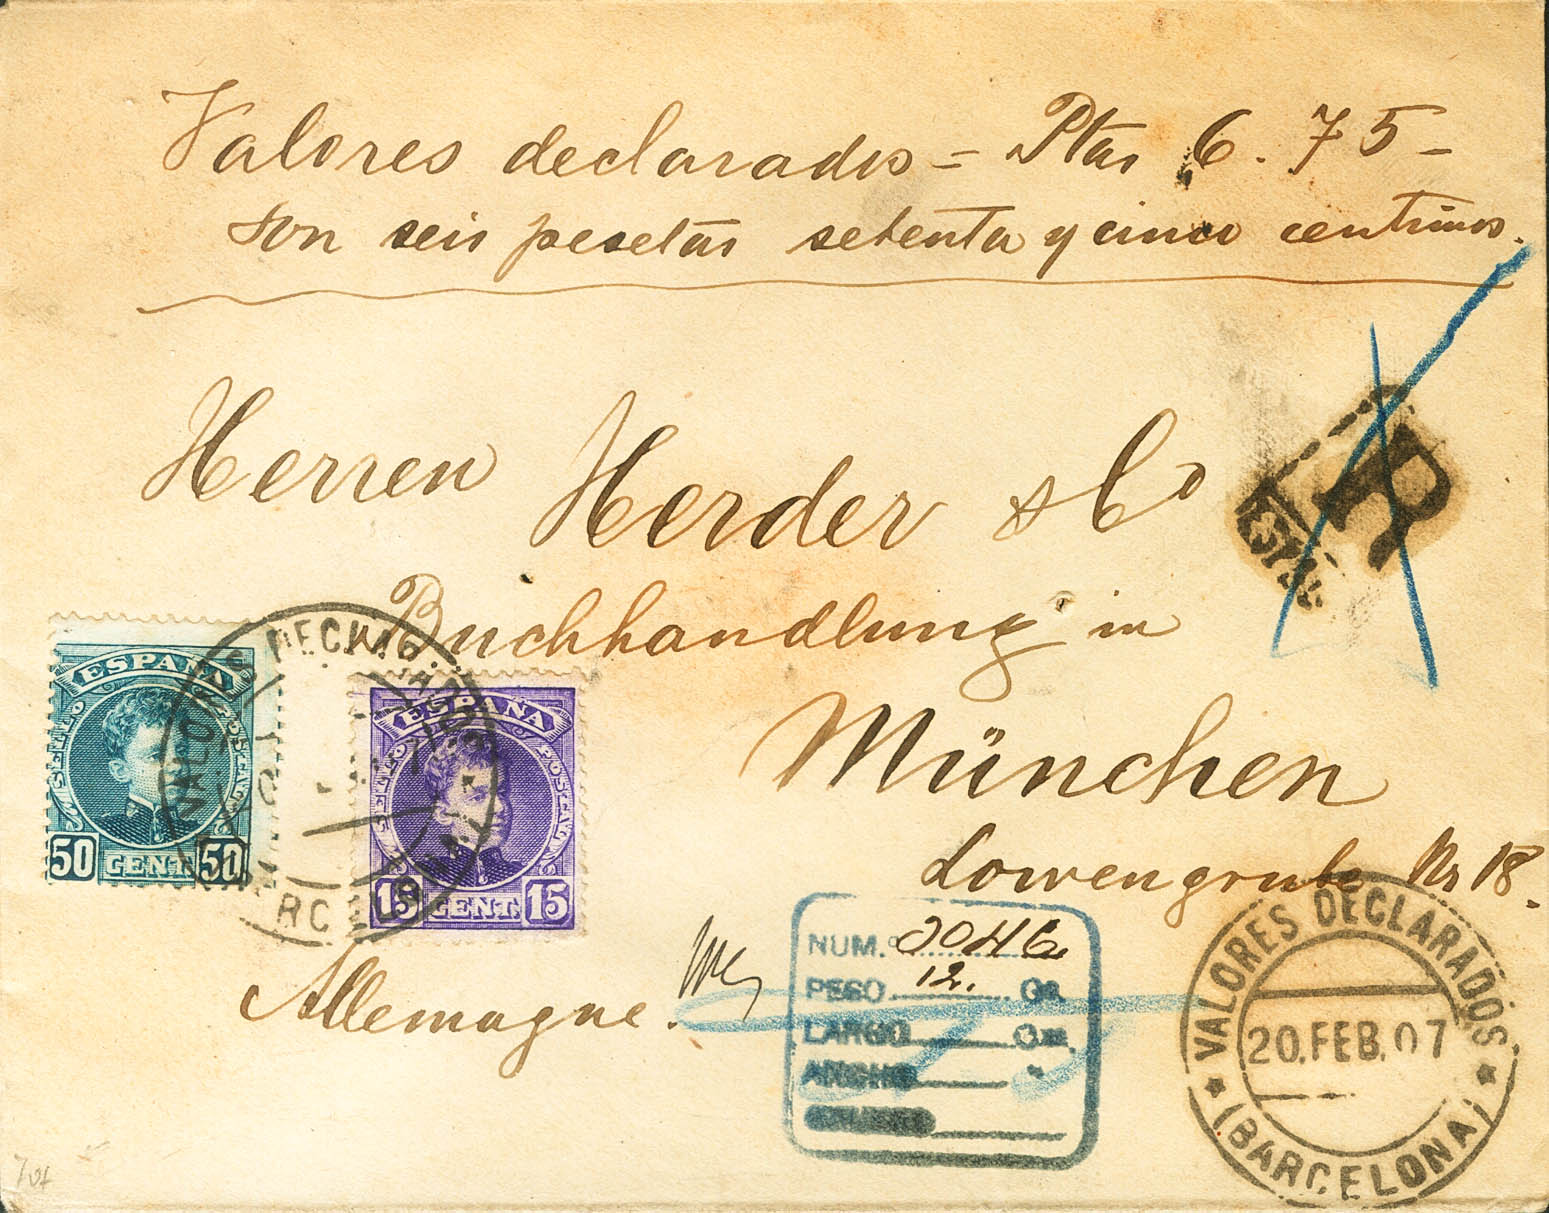 Valores declarados = Ptas 6.75-
son seis pesetas setenta y cinco centimos.
Herren Herder & Co
R
Buchhandlung in
München
Lowengrube Nr 18.
ESPAÑA
SELLO POSTAL
50 CENT. 50
ESPAÑA
SELLO POSTAL
15 CENT. 15
VALORES DECLARADOS
Allemagne.
NUM. 2046
PESO 12. Gs.
LARGO Cm.
ANCHO "
VALORES DECLARADOS
20.FEB.07
(BARCELONA)